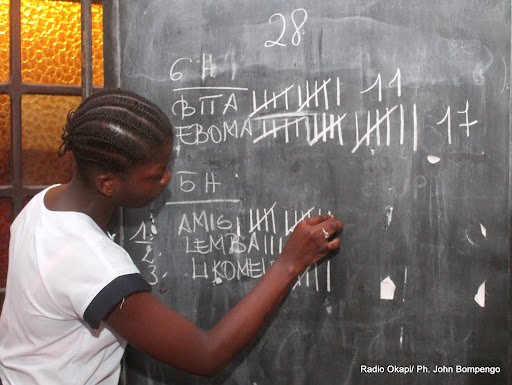 28
6 H
ΦΠΑ 11
EBOMA 17
5 H
1. AMIG
2. LEMBA
3. LIKOME
Radio Okapi/ Ph. John Bompengo